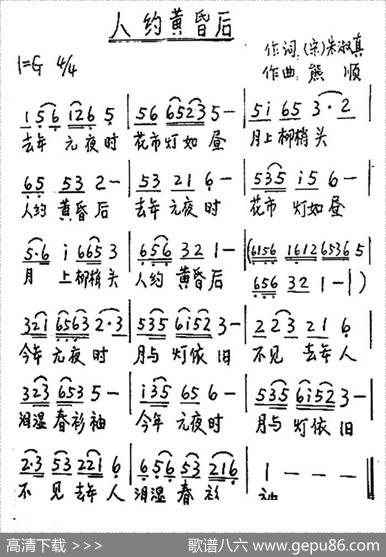 人约黄昏后
1=G 4/4
作词:(宋)朱淑真
作曲:熊 顺
156 126 5 56 6523 5 — 5i 65 3·2
去年 元夜时 花市灯如昼 月上柳梢头
65 53 2 — 53 21 6 — 535 i5 6 —
人约 黄昏后 去年 元夜时 花市 灯如昼
5·6 i 665 3 656 32 1 — (6156 1612 6536 5
月 上柳梢头 人约 黄昏后
656 32 1 — 1)
321 6563 2·3 535 6152 3 — 223 21 6
今年 元夜时 月与 灯依旧 不见 去年人
323 653 5 — i35 65 6 — 535 6i52 3 —
泪湿 春衫袖 今年 元夜时 月与 灯依旧
2·3 53 221 6 656 53 216 1 — — —
不 见 去年 人 泪湿 春 衫 袖
高清下载 >>> 歌谱八六 www.gepu86.com